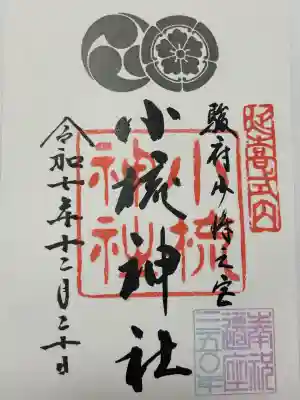 延喜式内
駿府少将之宮
小梳神社
小梳
神社
令和七年十二月三十日
奉祝
遷座
三五〇年